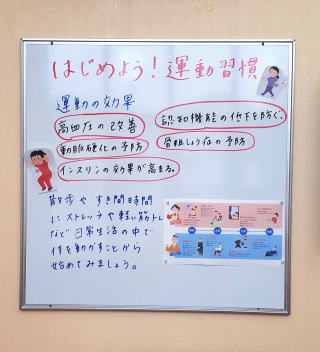 はじめよう！運動習慣
運動の効果
高血圧の改善
認知機能の低下を防ぐ。
動脈硬化の予防
骨粗しょう症の予防
インスリンの効果が高まる。
散歩やすき間時間
にストレッチや軽い筋トレ
など日常生活の中で
体を動かすことから
始めてみましょう。